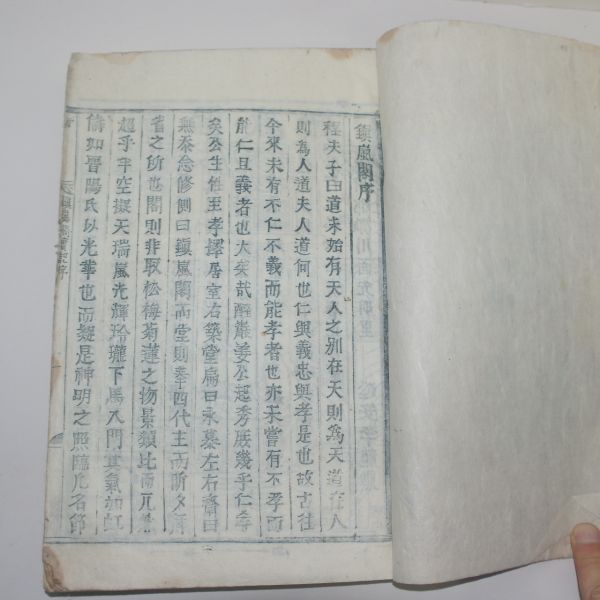 鎭嵐閣序
程夫子曰道未始有天人之別在天則爲天道在人
則爲人道夫人道何也仁與義忠與孝是也故古往
今來未有不仁不義而能孝者也亦未嘗有不孝而
能仁且義者也大矣哉醒叢姜公起秀族幾乎仁孝
矣公生任至孝擇居室右築堂扁曰永慕左右齋曰
無忝怠修側曰鎭嵐閣高堂則奉四代主而所
者之所也閣則非取松梅菊蓮之物景類比而
超乎半空擬天瑞嵐光輝玲瓏下馬入門其氣如虹
儔如晋陽氏以光華也而疑是神明之照臨